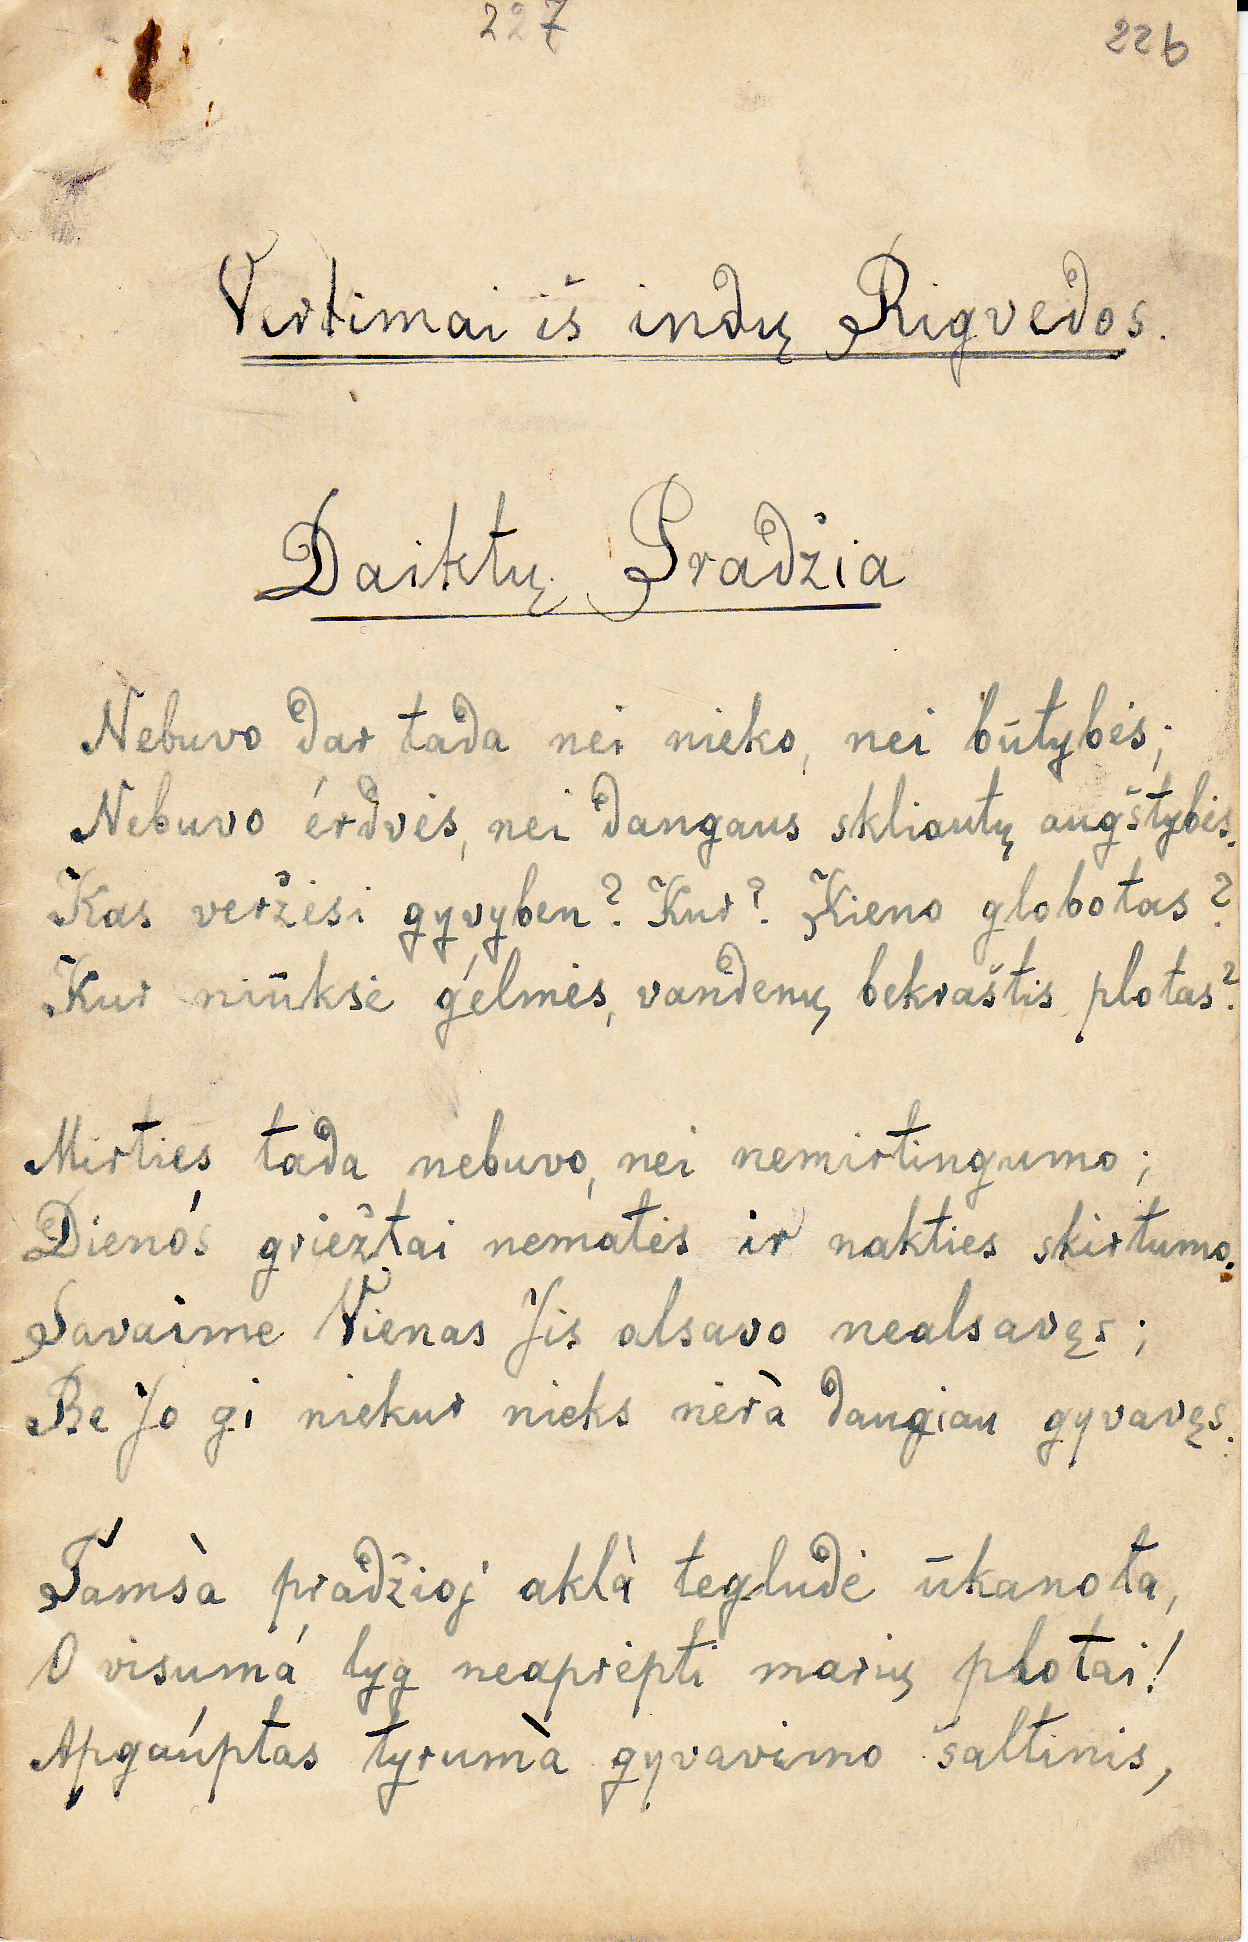 227
226
Vertimai iš indų Rigvedos.
Daiktų Pradžia
Nebuvo dar tada nei nieko, nei būtybės;
Nebuvo érdvės, nei dangaus skliautų augštybės.
Kas veržėsi gyvyben? Kur? Kieno globotas?
Kur niūksė gélmės, vandenų bekraštis plotas?
Mirties tada nebuvo, nei nemirtingumo;
Dienós griežtai nematės ir nakties skirtumo.
Savaime Vienas Jis alsavo nealsavęs;
Be Jo gi niekur nieks nėrà daugiau gyvavęs.
Tamsà pradžioj aklà tegludė ūkanota,
O visumá lyg neaprėpti marių plotai!
Apgaúptas tyrumà gyvavimo šaltinis,